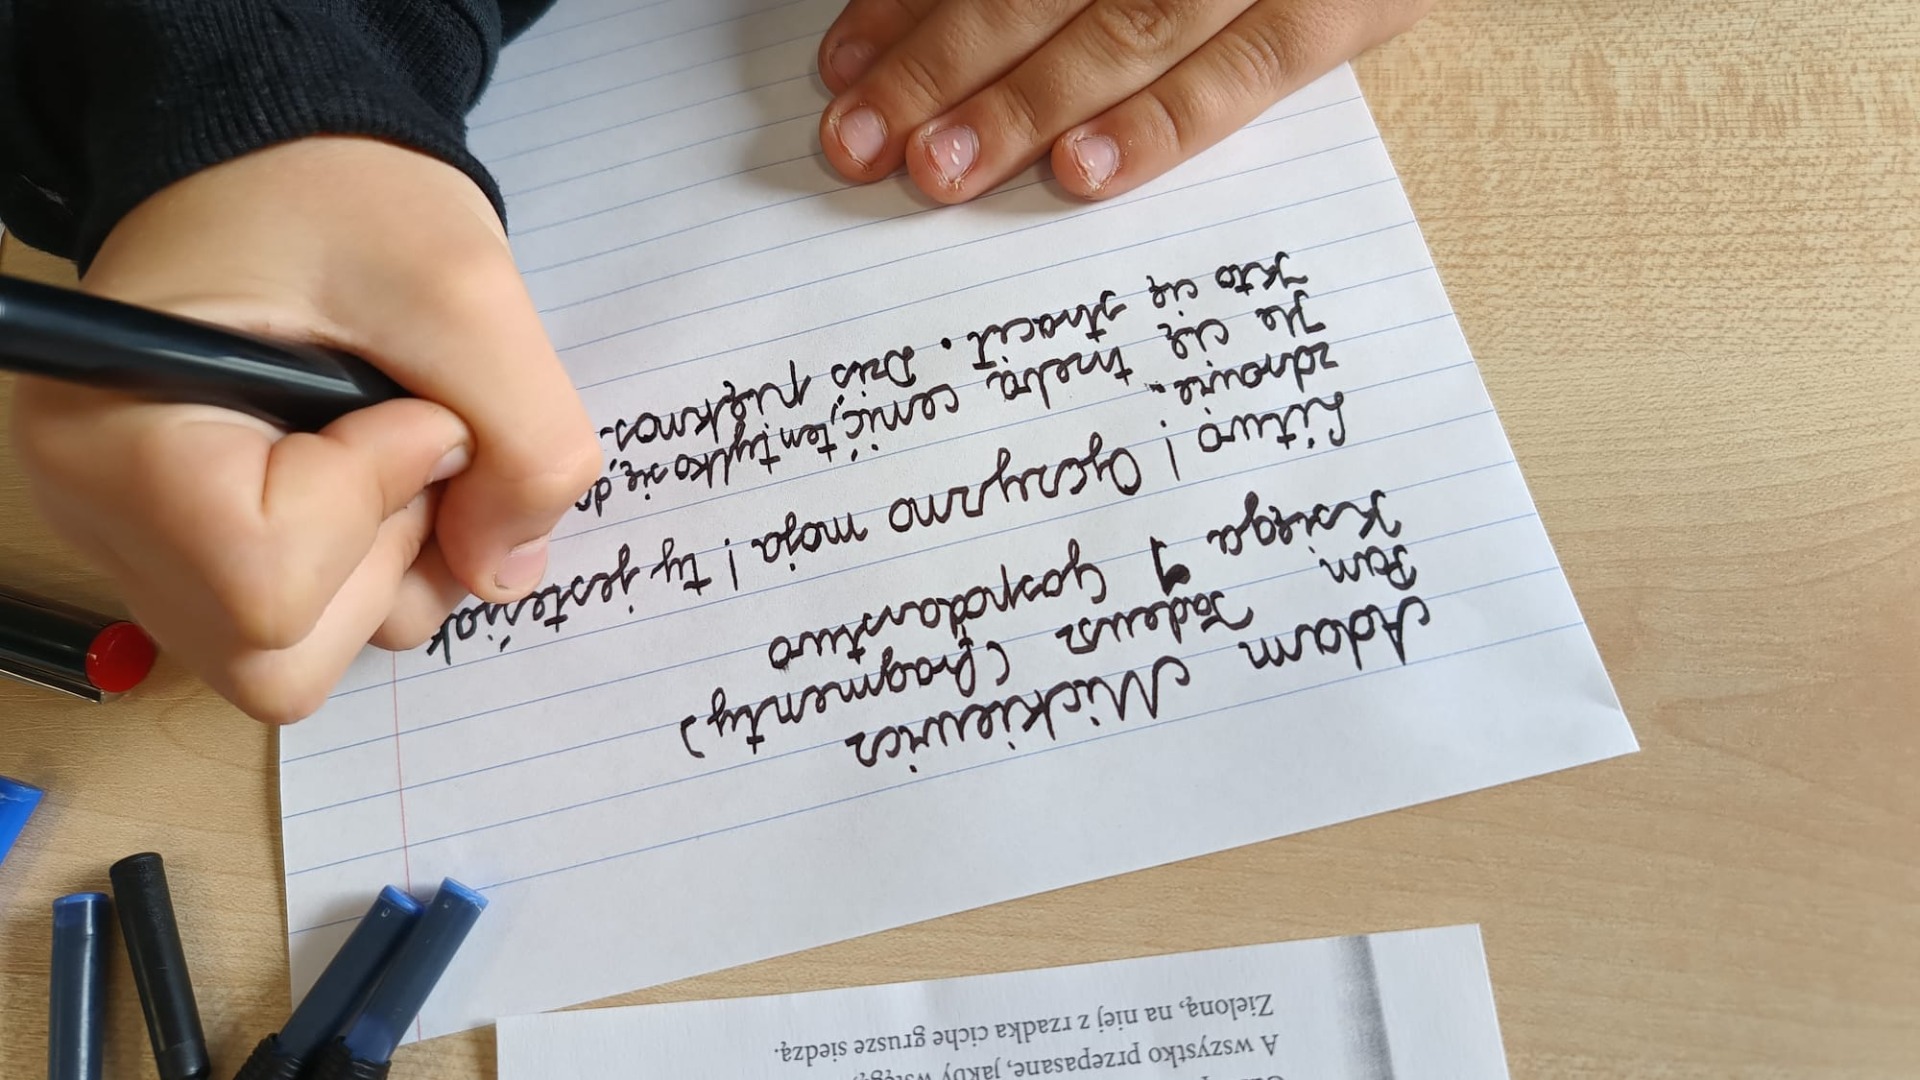 A wszystko przepasane, jakby
Zieloną, na niej z rzadka ciche grusze siedzą.
Adam Mickiewicz
Pan Tadeusz (fragmenty)
Księga 1 Gospodarstwo
Litwo! Ojczyzno moja! ty jesteś jak
zdrowie.
Ile cię trzeba cenić, ten tylko się do
Kto cię stracił. Dziś pięknoś-